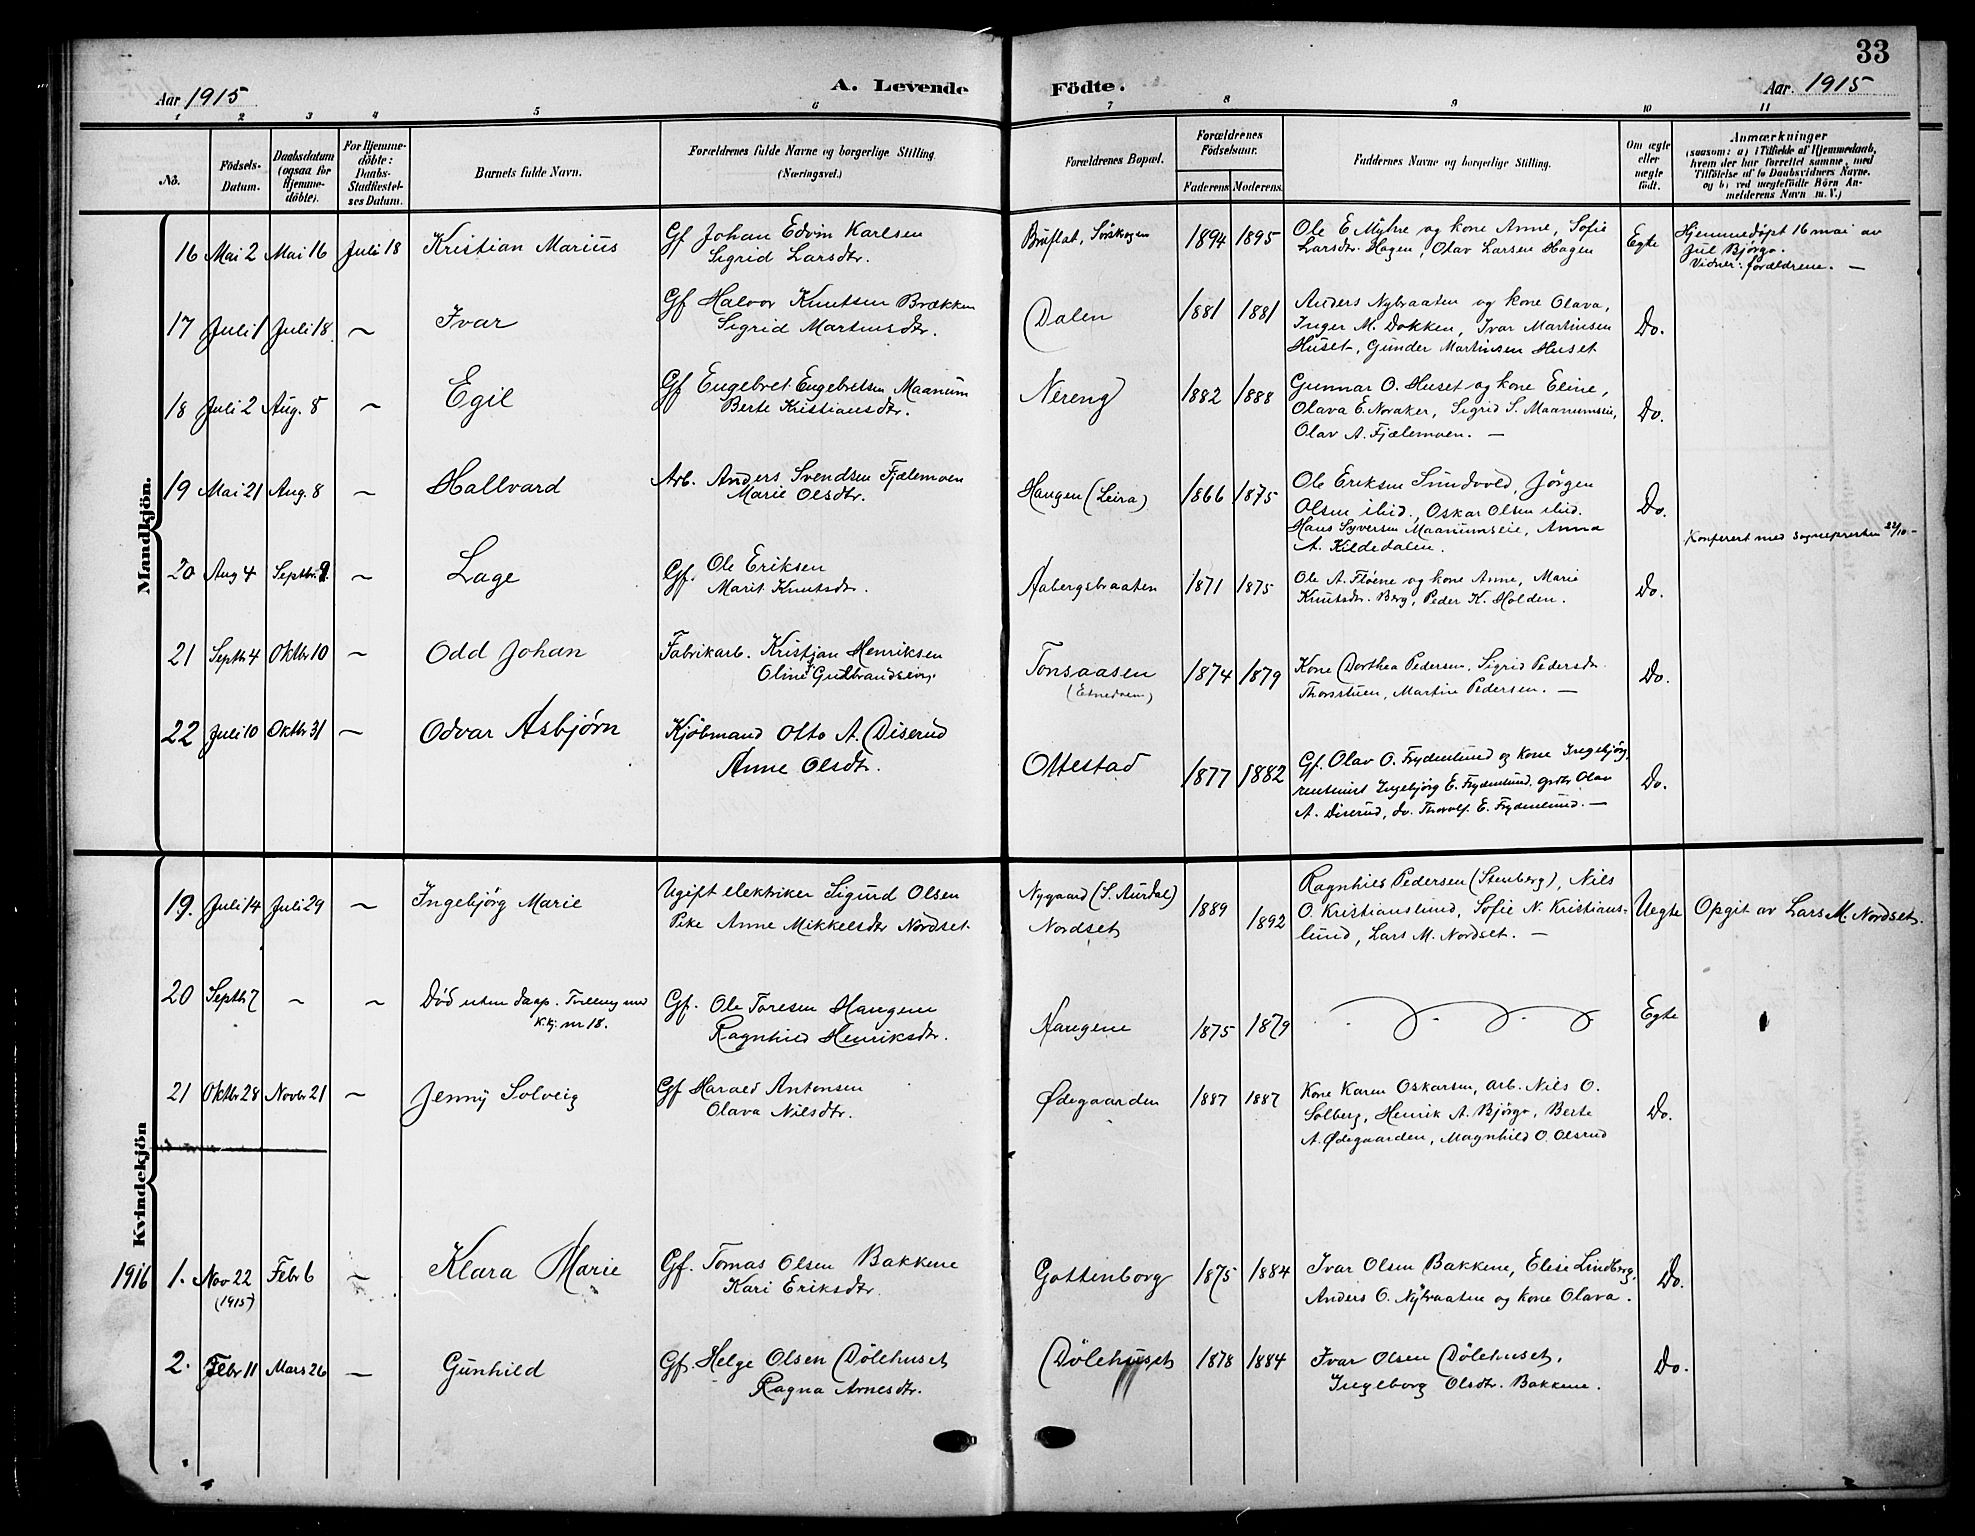 33
Aar 1915
A. Levende Födte.
Aar. 1915
1 2 3 4 5 6 7 8 9 10 11
No.
Födsels-Datum.
Daabsdatum (ogsaa for Hjemmedöbte).
For Hjemmedöbte: Daabs-Stadfæstelses Datum.
Barnets fulde Navn.
Forældrenes fulde Navne og borgerlige Stilling (Næringsvei.)
Forældrenes Bopæl.
Forældrenes Födselsaar.
Faderens Moderens.
Faddernes Navne og borgerlige Stilling.
Om ægte eller uægte födt.
Anmærkninger
(saasom: a) i Tilfælde af Hjemmedaab,
hvem der har forrettet samme, med
Tilföielse af to Daabsvidners Navne.
og b) ved uægtefödte Börn An-
melderens Navn m. V.)
Mandkjön.
16 Mai 2 Mai 16 Juli 18 Kristian Marius Gf Johan Edvin Karlsen Bruflat, Sørskogen 1894 1895 Ole E Myhre og kone Anne, Sofie Egte Hjemmedøpt 16 mai av
Sigrid Larsdtr. Larsdtr. Hagen, Olav Larsen Hagen Jul Bjørgo.
Vidner: forældrene. —
17 Juli 1 Juli 18. ~ Ivar Gf Halvor Knutsen Brækken Dalen 1881 1881 Anders Nybraaten og kone Olava, Do.
Sigrid Martinsdtr. Inger M. Dokken, Ivar Martinsen
Huset, Gunder Martinsen Huset
18 Juli 2 Aug. 8 ~ Egil Gf Engebret Engebretsen Maanum Nereng 1882 1888 Gunnar O. Huset og kone Eline, Do.
Berte Kristiansdtr. Olava E. Noraker, Sigrid S. Maanumseie,
Olav A. Fjælemoen. —
19 Mai 21 Aug. 8 ~ Hallvard Arb. Anders Svendsen Fjælemoen Haugen (Leira) 1866 1875 Ole Eriksen Sundvold, Jørgen Do.
Marie Olsdtr. Olsen ibid., Oskar Olsen ibid.
Hans Syversen Maanumseie, Anna Konferert med sogneprester 22/10 -
A. Kildedalen.
20 Aug 4 Septbr. 9 ~ Lage Gf. Ole Eriksen Aabergsbraaten 1871 1875 Ole A. Fløene og kone Anne, Marie Do.
Marit Knutsdtr. Knutsdtr. Berg, Peder K. Holden.
21 Septb 4 Oktbr 10 ~ Odd Johan Fabrikarb. Kristjan Henriksen Tonsaasen 1874 1879 Kone Dorthea Pedersen, Sigrid Pedersdtr. Do.
Oline Gudbrandseier. (Etnedøem) Thorstuen, Martin Pedersen. —
22 Juli 10 Oktbr 31 ~ Odvar Asbjørn Kjöbmand Otto A. Diserud Ottestad 1877 1882 Gf. Olav O. Frydenlund og kone Ingebjörg, Do.
Anne Olsdtr. Ingebjörg E. Frydenlund, Olav
A. Diserud, do. Thorolf E. Frydenlund. —
Kvindekjön
19. Juli 14 Juli 29 ~ Ingebjörg Marie Ugift elektriker Sigurd Olsen Nygaard (S. Aurdal) 1889 1892 Ragnhild Pedersen (Stenberg), Nils Uegte Opgit av Lars M. Nordset.
Pike Anne Mikkelsdtr Nordset. Nordset O. Kristianslund, Sofie N. Kristians-
lund, Lars M. Nordset. —
20 Septb 7 ~ ~ Død uten daap. Tvilling med Gf. Ole Toresen Haugene Haugene 1875 1879 Egte
K.kj. nr 18. Ragnhild Henriksdtr.
21 Oktbr 28 Novbr 21 ~ Jenny Solveig Gf Harald Antonsen Ødegaarden 1887 1887 Kone Karen Oskarsen, arb. Nils O. Do.
Olava Nilsdtr. Solberg, Henrik A. Bjørgo, Berte
A. Ødegaarden, Magnhild O. Olsrud
1916 1. Nov 22 Febr 6 ~ Klara Marie Gf. Tomas Olsen Bakkene Gottenborg 1875 1884 Ivar Olsen Bakkene, Elise Lindberg, Do.
(1915) Kari Eriksdtr. Anders O. Nybraaten og kone Olava.
2. Febr 11 Mars 26 — Gunhild Gf. Helge Olsen Dölehuset Dölehuset 1878 1884 Ivar Olsen Dölehuset, Do.
Ragna Arnesdtr. Ingeborg Olsdtr. Bakkene.